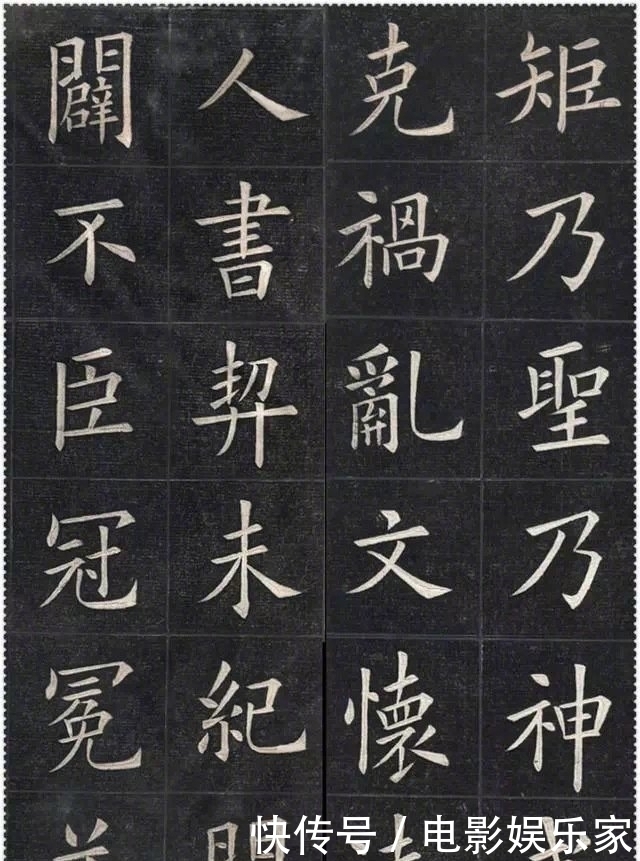 矩乃聖乃神
克禍亂文懷
人書契未紀
闢不臣冠冕
快传号 / 电影娱乐家